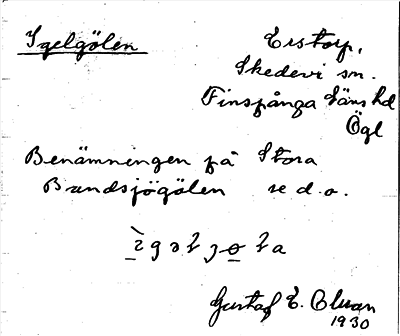 Igelgölen
Erstorp,
Skedevi sn.
Finspånga läns hd
Ögl
Benämningen på Stora
Bundsjögölen se d.o.
Gustaf E.
1930